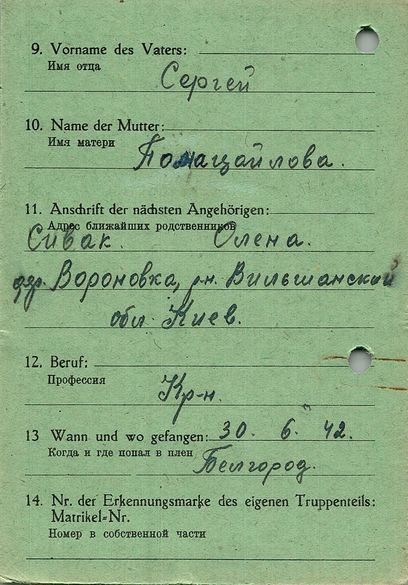 9. Vorname des Vaters:
Имя отца
Сергей
10. Name der Mutter:
Имя матери
Помацайлова.
11. Anschrift der nächsten Angehörigen:
Адрес ближайших родственников
Сивак. Олена.
дер. Вороновка, р-н. Вильшанский
обл. Киев.
12. Beruf:
Профессия
Кр-н.
13 Wann und wo gefangen: 30. 6. 42.
Когда и где попал в плен
Белгород.
14. Nr. der Erkennungsmarke des eigenen Truppenteils:
Matrikel-Nr.
Номер в собственной части